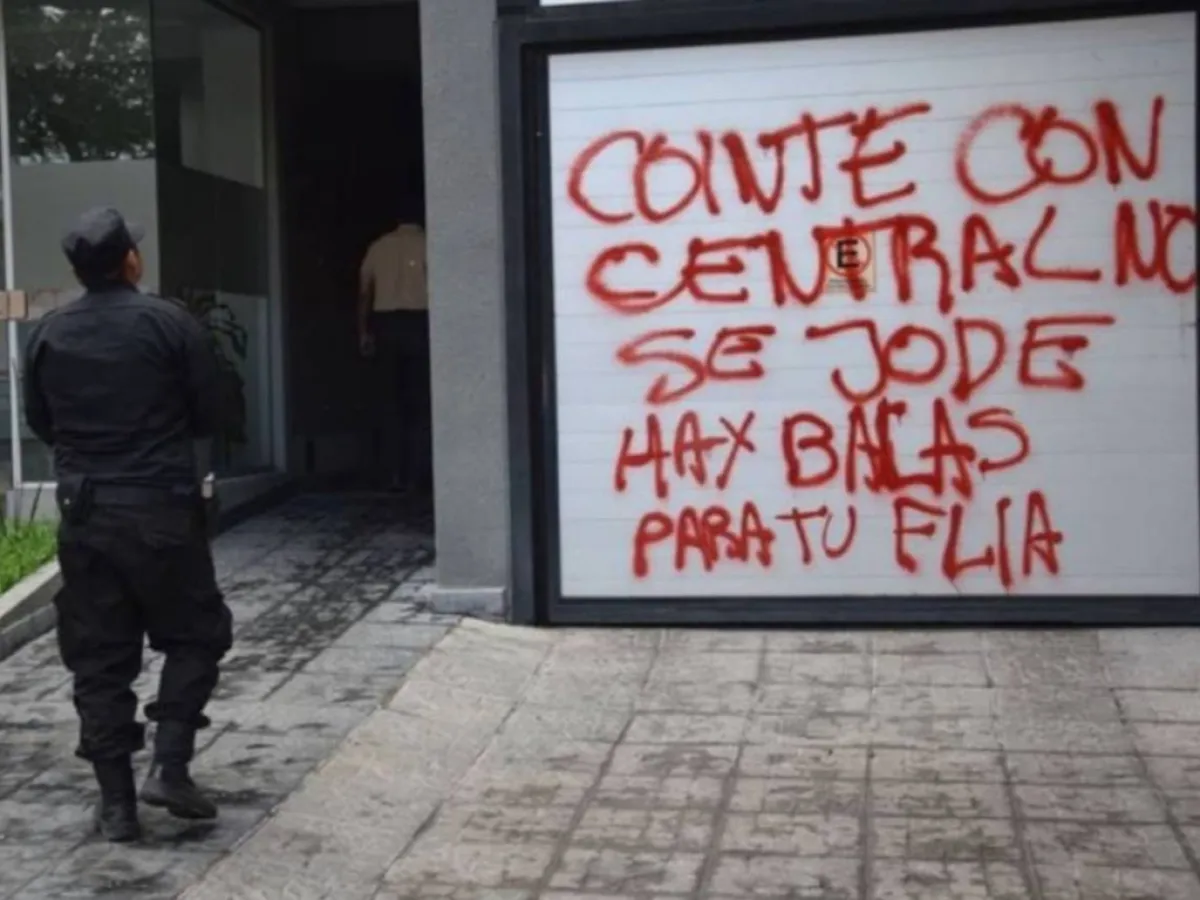 COINTE CON
CENTRAL NO
E
SE JODE
HAY BALAS
PARA TU FLIA